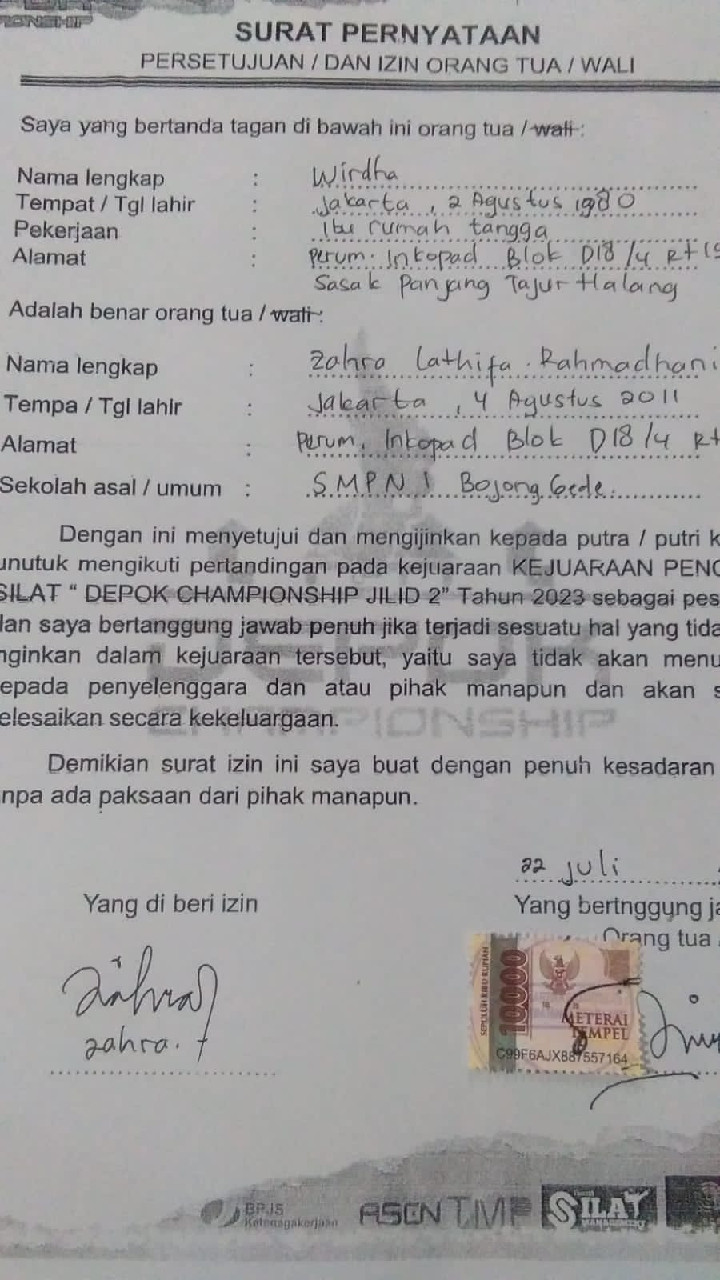 IONSHIP
SURAT PERNYATAAN
PERSETUJUAN / DAN IZIN ORANG TUA / WALI
Saya yang bertanda tagan di bawah ini orang tua / wali :
Nama lengkap : Wirdha
Tempat / Tgl lahir : Jakarta, 2 Agustus 1980
Pekerjaan : Ibu rumah tangga
Alamat : Perum. Inkopad Blok D18/4 Rt
Sasak Panjang Tajur Halang
Adalah benar orang tua / wali :
Nama lengkap : Zahra Lathifa Rahmadhani
Tempa / Tgl lahir : Jakarta, 4 Agustus 2011
Alamat : Perum, Inkopad Blok D18/4 Rt
Sekolah asal / umum : SMPN 1 Bojong Gede
Dengan ini menyetujui dan mengijinkan kepada putra / putri k
unutuk mengikuti pertandingan pada kejuaraan KEJUARAAN PENC
SILAT “ DEPOK CHAMPIONSHIP JILID 2” Tahun 2023 sebagai pes
dan saya bertanggung jawab penuh jika terjadi sesuatu hal yang tida
nginkan dalam kejuaraan tersebut, yaitu saya tidak akan menu
epada penyelenggara dan atau pihak manapun dan akan s
elesaikan secara kekeluargaan.
DEPOK
CHAMPIONSHIP
Demikian surat izin ini saya buat dengan penuh kesadaran
npa ada paksaan dari pihak manapun.
22 Juli
Yang di beri izin
Yang bertnggung ja
Orang tua
SEPULUH RIBU RUPIAH
10000
METERAI
TEMPEL
C99F6AJX887557164
zahra
zahra. f
BPJS
Ketenagakerjaan
SILAT